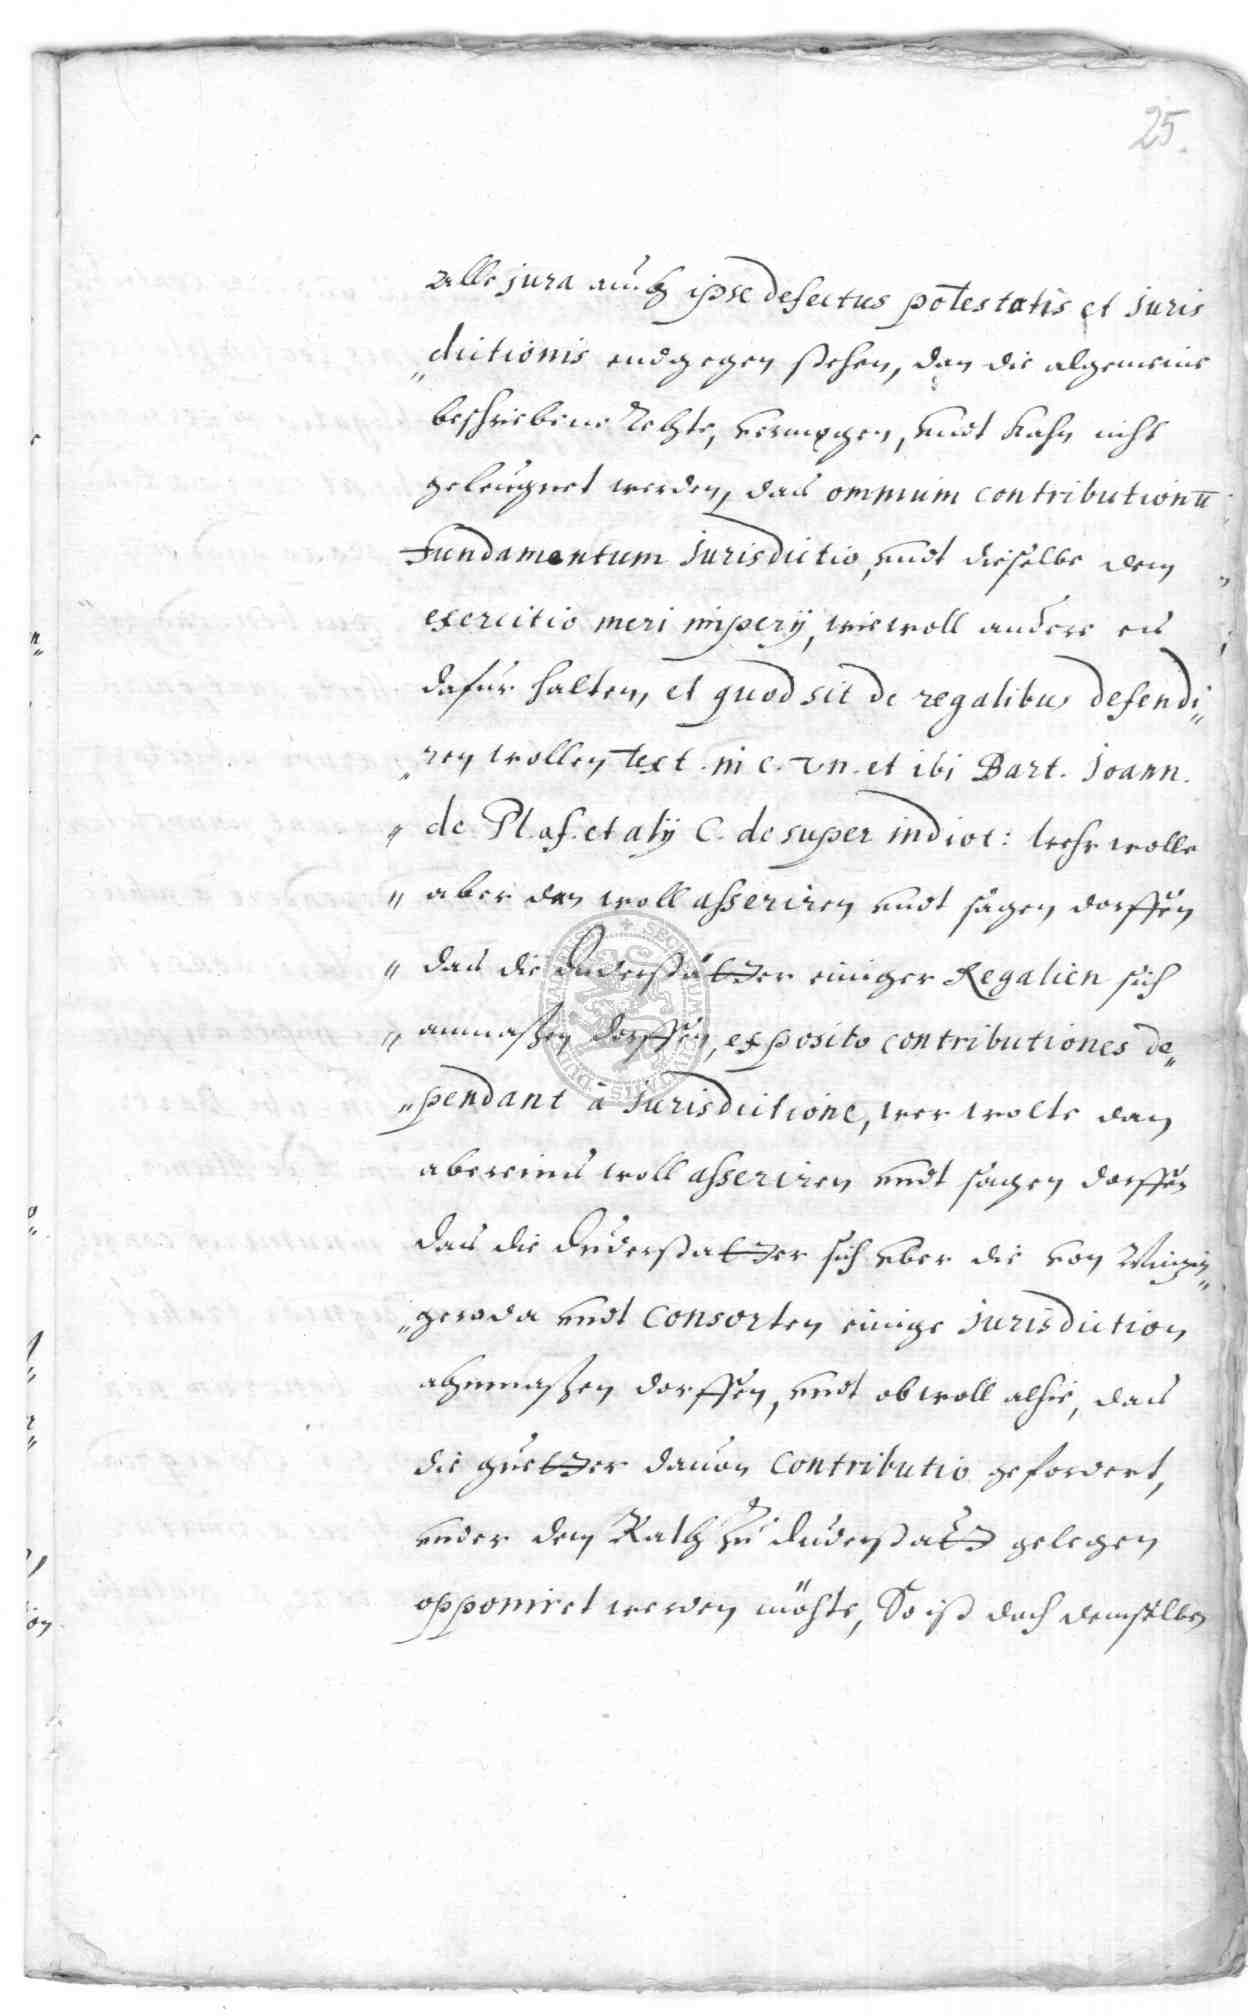 25.
alle jura auch ipse defectus potestatis et juris
"dictionis endgegen stehen, dan die algemeine
beschriebene Rechte, vermogen, undt kahn nicht
geleugnet werden, das omnium contributionū
Fundamentum jurisdictio, undt dieselbe dem
exercitio meri imperij, wiewoll andere es
dafür halten, et quod sit de regalibus defendi„
„ren wollen text. in c. vn. et ibi Bart. Joann.
„ de Pl. af. et alij C. de super indict: wehr wolle
„ aber dan woll asseriren undt sagen dorffen
„ das die Duderstätter einiger Regalien sich
„ anmaßen dorffen, ex posito contributiones de„
„pendant à jurisdictione, wer wolte dan
abereins woll asseriren undt sagen dorffen
das die Duderstatter sich uber die von Wintzin„
„geroda undt Consorten einige jurisdiction
ahnmaßen dorffen, undt obwoll alhie, das
die guetter davon Contributio gefordert,
under dem Rath zu Duderstatt gelegen
opponiret werden möchte, So ist doch demselben